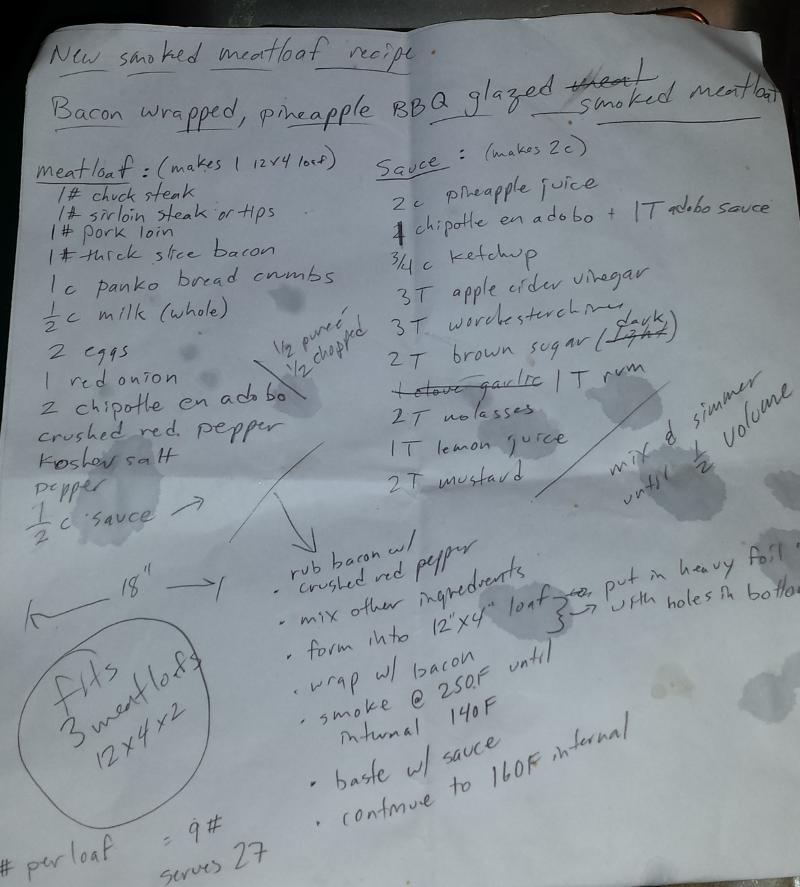 New smoked meatloaf recipe.
Bacon wrapped, pineapple BBQ glazed meat smoked meatloaf
meatloaf: (makes 1 12x4 loaf)
1# chuck steak
1# sirloin steak or tips
1# pork loin
1# thick slice bacon
1 c panko bread crumbs
1/2 c milk (whole)
2 eggs
1 red onion
2 chipotle en adobo
1/2 pureé
1/2 chopped
crushed red pepper
Kosher salt
pepper
1/2 c sauce →
Sauce: (makes 2c)
2 c pineapple juice
1 chipotle en adobo + 1T adobo sauce
3/4 c ketchup
3T apple cider vinegar
3T worchesterchire
2T brown sugar (light dark)
1 clove garlic 1T rum
2T molasses
1T lemon juice
2T mustard
mix & simmer
until 1/2 volume
rub bacon w/
crushed red pepper
• mix other ingredients
• form into 12"x4" loaf → put in heavy foil
with holes in bottom
• wrap w/ bacon
• smoke @ 250F until
internal 140F
• baste w/ sauce
• continue to 160F internal
18"
fits
3 meatlofs
12x4x2
# per loaf = 9#
serves 27